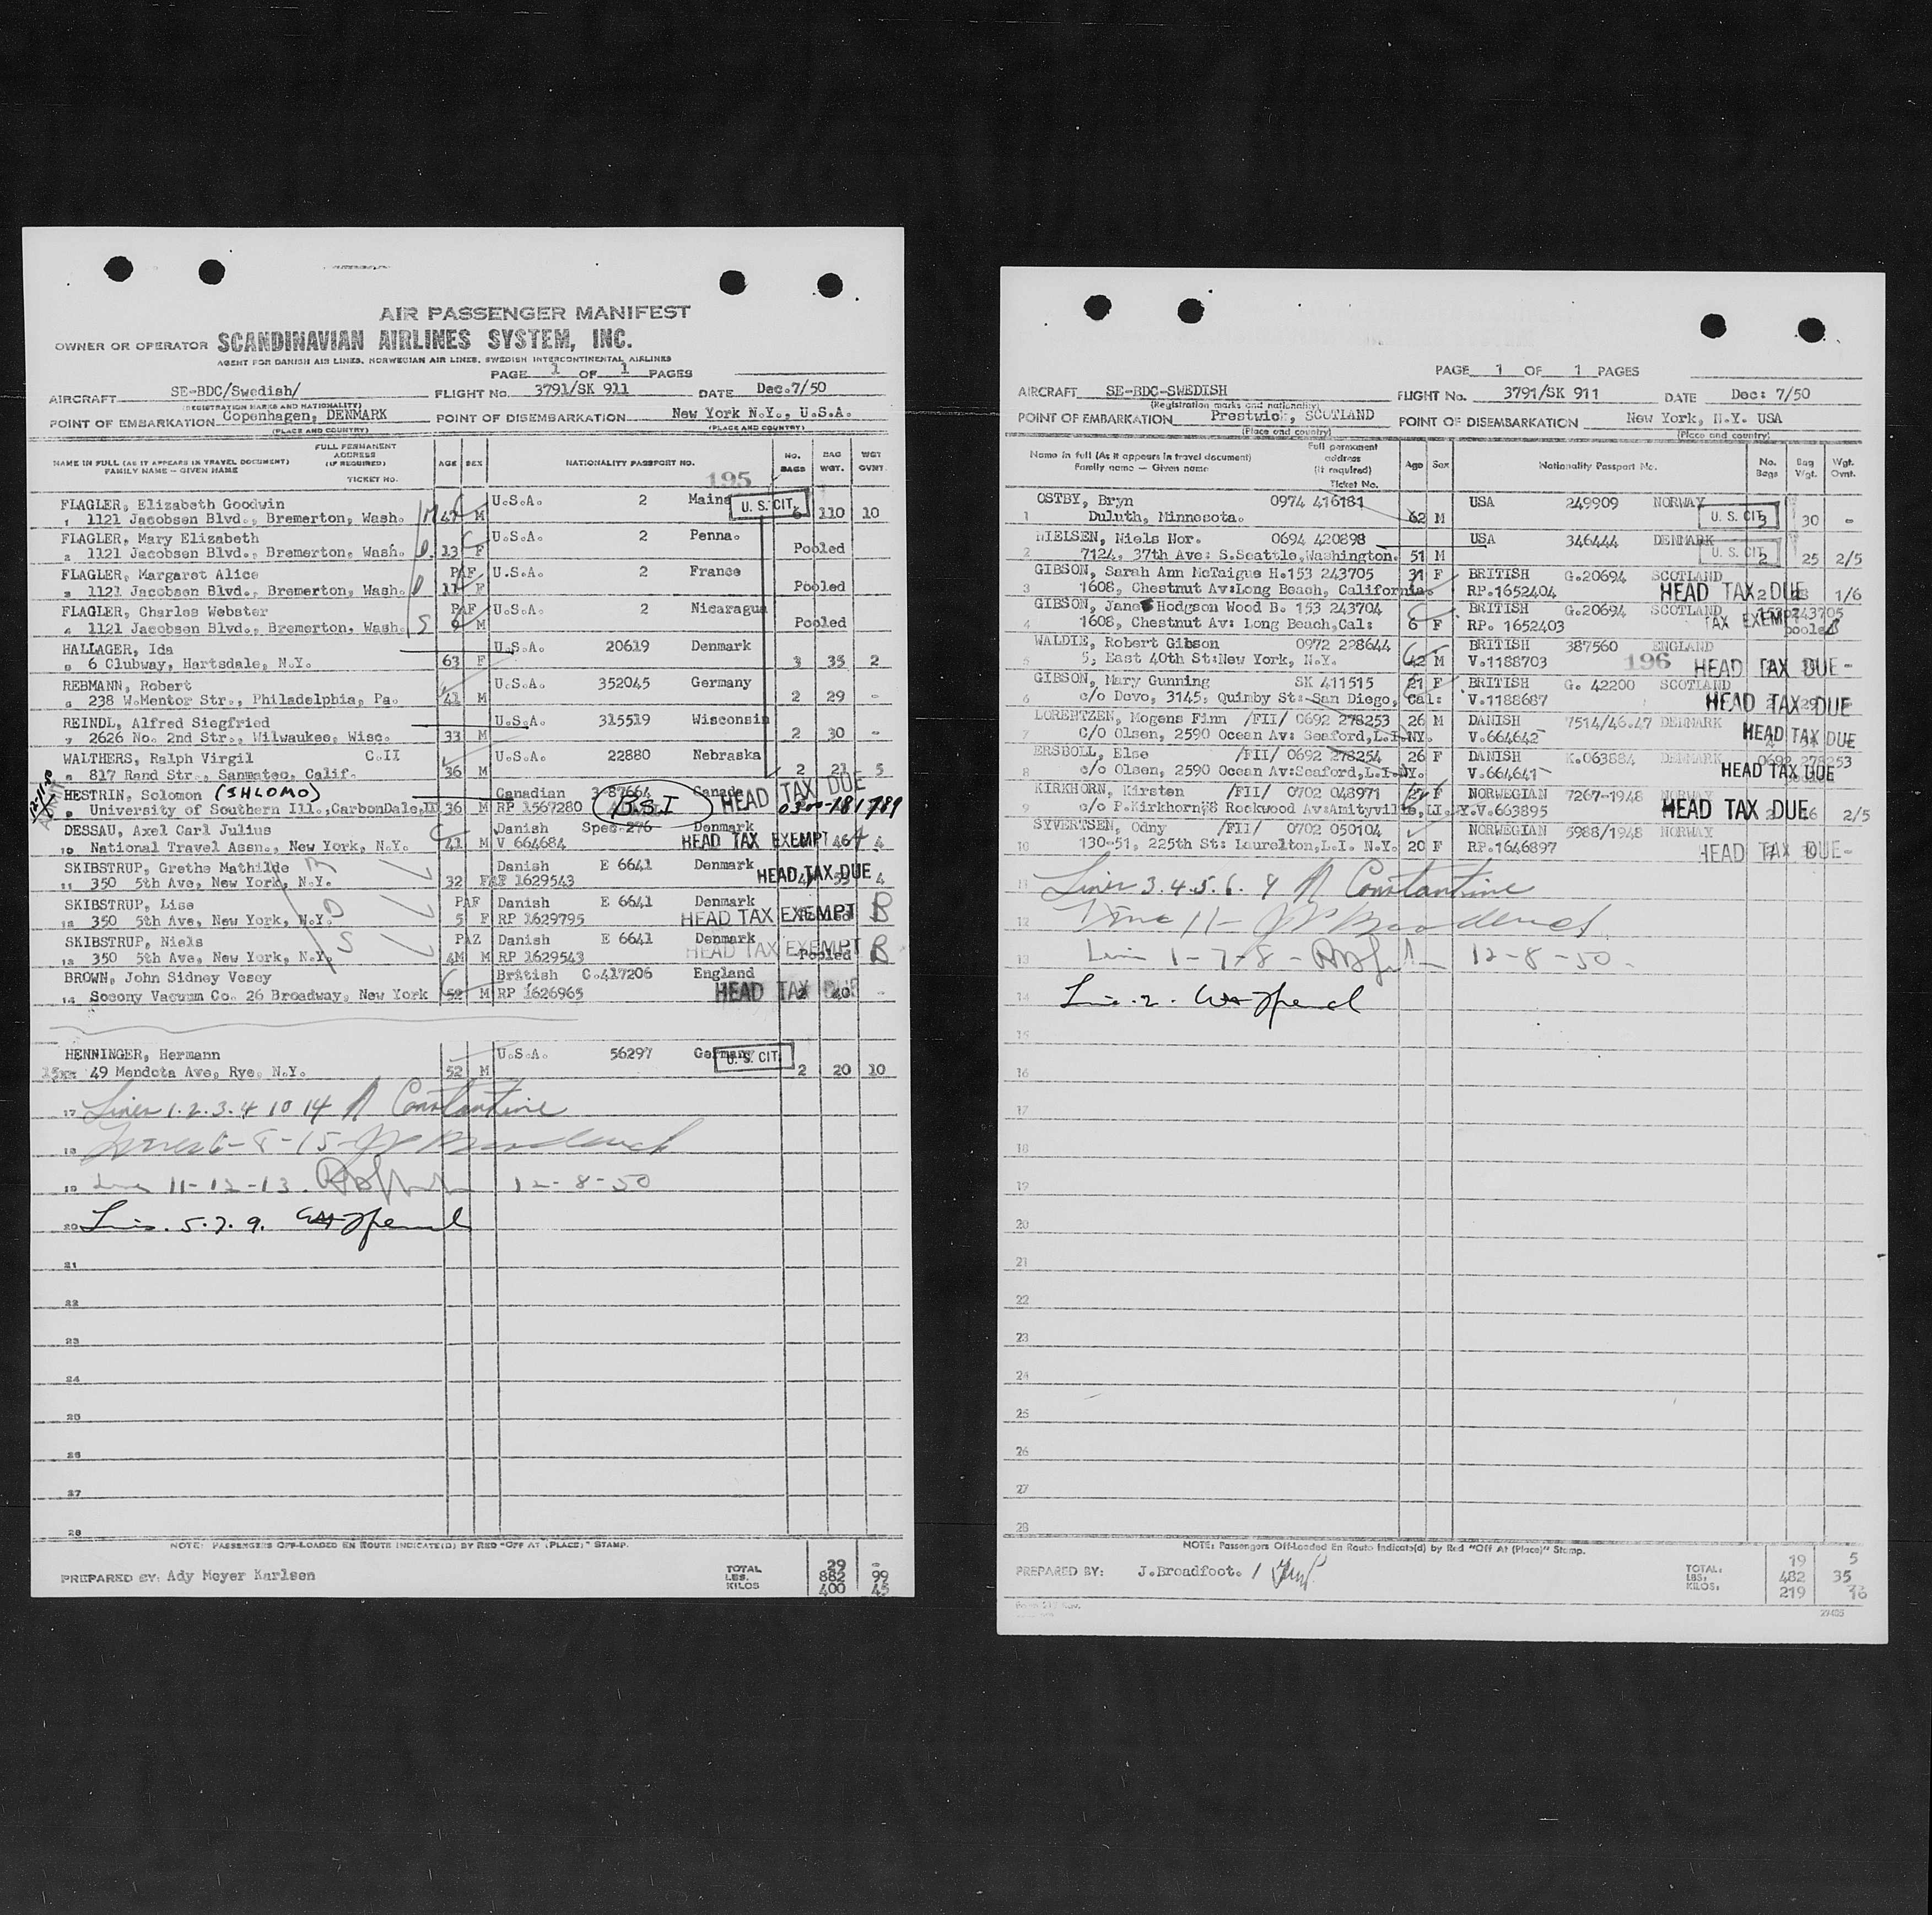 AIR PASSENGER MANIFEST
OWNER OR OPERATOR SCANDINAVIAN AIRLINES SYSTEM, INC.
AGENT FOR DANISH AIR LINES, NORWEGIAN AIR LINES, SWEDISH INTERCONTINENTAL AIRLINES
PAGE 1 OF 1 PAGES
AIRCRAFT SE-BDC/Swedish/ FLIGHT No. 3791/SK 911 DATE Dec.7/50
(REGISTRATION MARKS AND NATIONALITY)
POINT OF EMBARKATION Copenhagen, DENMARK POINT OF DISEMBARKATION New York N.Y., U.S.A.
(PLACE AND COUNTRY) (PLACE AND COUNTRY)
FULL PERMANENT ADDRESS (IF REQUIRED) TICKET NO.
NAME IN FULL (AS IT APPEARS IN TRAVEL DOCUMENT) FAMILY NAME — GIVEN NAME AGE SEX NATIONALITY PASSPORT NO. NO. BAGS BAG WGT. WGT OVNT.
195
FLAGLER, Elizabeth Goodwin U.S.A. 2 Maine U. S. CIT.
1 1121 Jacobsen Blvd., Bremerton, Wash. M 47 M 6 110 10
FLAGLER, Mary Elizabeth U.S.A. 2 Penna.
2 1121 Jacobsen Blvd., Bremerton, Wash. D. 13 F Pooled
FLAGLER, Margaret Alice PAF U.S.A. 2 France
3 1121 Jacobsen Blvd., Bremerton, Wash. D 11 F Pooled
FLAGLER, Charles Webster PAF U.S.A. 2 Nicaragua
4 1121 Jacobsen Blvd., Bremerton, Wash. S 6 M Pooled
HALLAGER, Ida U.S.A. 20619 Denmark
5 6 Clubway, Hartsdale, N.Y. 63 F 3 35 2
REBMANN, Robert U.S.A. 352045 Germany
6 238 W.Mentor Str., Philadelphia, Pa. 41 M 2 29 -
REINDL, Alfred Siegfried U.S.A. 315519 Wisconsin
7 2626 No. 2nd Str., Milwaukee, Wisc. 33 M 2 30 -
WALTHERS, Ralph Virgil C.II U.S.A. 22880 Nebraska
8 817 Rand Str., Sanmateo, Calif. 36 M 2 21 5
HESTRIN, Solomon (SHLOMO) Canadian 3-87664 Canada HEAD TAX DUE
9 University of Southern Ill., CarbonDale, Ill 36 M RP 1567280 B.S.I 0300-181789
DESSAU, Axel Carl Julius Danish Spec.276 Denmark
10 National Travel Assn., New York, N.Y. 41 M V 664684 HEAD TAX EXEMPT 46 4
SKIBSTRUP, Grethe Mathilde Danish E 6641 Denmark
11 350 5th Ave, New York, N.Y. 32 F RP 1629543 HEAD TAX DUE 4
SKIBSTRUP, Lise PAF Danish E 6641 Denmark
12 350 5th Ave, New York, N.Y. D 5 F RP 1629795 HEAD TAX EXEMPT B
SKIBSTRUP, Niels PAZ Danish E 6641 Denmark
13 350 5th Ave, New York, N.Y. S 4M M RP 1629543 HEAD TAX EXEMPT Pooled B
BROWN, John Sidney Vesey British C.417206 England
14 Socony Vacuum Co. 26 Broadway, New York 52 M RP 1626965 HEAD TAX DUE 2 40 -
HENNINGER, Hermann U.S.A. 56297 Germany U. S. CIT.
15 49 Mendota Ave, Rye, N.Y. 52 M 2 20 10
17 Lines 1.2.3.4 10 14 A Constantine
18
19 Line 11-12-13. 12-8-50
20 Lines. 5.7.9.
21
22
23
24
25
26
27
28
NOTE: PASSENGERS OFF-LOADED EN ROUTE INDICATE(D) BY RED "OFF AT (PLACE)" STAMP.
TOTAL 29 -
PREPARED BY: Ady Meyer Karlsen LBS. 882 99
KILOS 400 45
PAGE 1 OF 1 PAGES
AIRCRAFT SE-BDC-SWEDISH FLIGHT No. 3791/SK 911 DATE Dec: 7/50
(Registration marks and nationality)
POINT OF EMBARKATION Prestwick, SCOTLAND POINT OF DISEMBARKATION New York, N.Y. USA
(Place and country) (Place and country)
Name in full (As it appears in travel document) Family name — Given name Full permanent address (if required) Ticket No. Age Sex Nationality Passport No. No. Bags Bag Wgt. Wgt. Ovnt.
OSTBY, Bryn 0974 416181 USA 249909 NORWAY
1 Duluth, Minnesota. 62 M U. S. CIT. 3 30 -
NIELSEN, Niels Nor. 0694 420898 USA 346444 DENMARK
2 7124, 37th Ave: S.Seattle, Washington. 51 M U. S. CIT. 2 25 2/5
GIBSON, Sarah Ann McTaigue H.153 243705 31 F BRITISH G.20694 SCOTLAND
3 1608, Chestnut Av:Long Beach, California. RP.1652404 HEAD TAX DUE 1/6
GIBSON, Jane Hodgson Wood B. 153 243704 BRITISH G.20694 SCOTLAND 153 243705
4 1608, Chestnut Av: Long Beach, Cal: 6 F RP. 1652403 TAX EXEMPT pooled
WALDIE, Robert Gibson 0972 228644 BRITISH 387560 ENGLAND
5 5, East 40th St:New York, N.Y. 42 M V.1188703 196 HEAD TAX DUE -
GIBSON, Mary Gunning SK 411515 21 F BRITISH G. 42200 SCOTLAND
6 c/o Devo, 3145, Quimby St: San Diego, Cal: V.1188687 HEAD TAX DUE
LORENTZEN, Mogens Finn /FII/ 0692 278253 26 M DANISH 7514/46.47 DENMARK
7 C/O Olsen, 2590 Ocean Av: Seaford, L.I.NY. V.664642 HEAD TAX DUE
ERSBOLL, Else /FII/ 0692 278254 26 F DANISH K.063884 DENMARK 0692 278253
8 c/o Olsen, 2590 Ocean Av:Seaford, L.I.NY. V.664641 HEAD TAX DUE
KIRKHORN, Kirsten /FII/ 0702 048971 F NORWEGIAN 7267-1948 NORWAY
9 c/o P.Kirkhorn, 8 Rockwood Av:Amityville, LI. NY. V.663895 HEAD TAX DUE 2/5
SYVERTSEN, Odny /FII/ 0702 050104 NORWEGIAN 5988/1948 NORWAY
10 130-51, 225th St: Laurelton, L.I. N.Y. 20 F RP.1646897 HEAD TAX DUE -
11 Lines 3.4.5.6. 9 A Constantine
12
13 Line 1-7-8 - 12-8-50.
14 Line. 2.
15
16
17
18
19
20
21
22
23
24
25
26
27
28
NOTE: Passengers Off-Loaded En Route Indicate(d) by Red "Off At (Place)" Stamp.
TOTAL: 19 5
PREPARED BY: J.Broadfoot. LBS: 482 35
KILOS: 219 16
27405